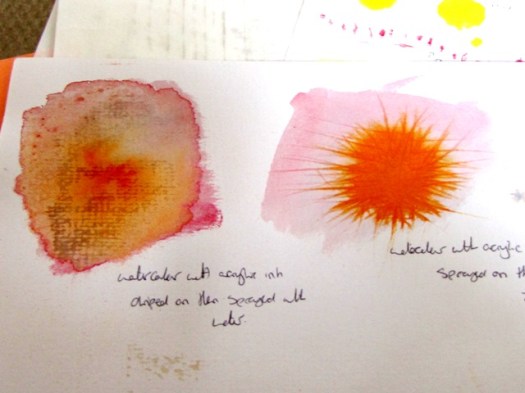 watercolour with acrylic ink
dripped on then sprayed with
water.
watercolour with acrylic
sprayed on th